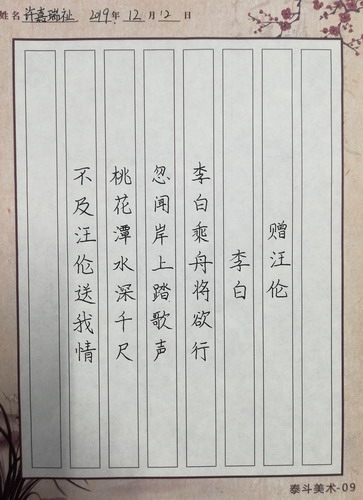 姓名 许嘉瑞祉 2019年 12月 12日
赠汪伦
李白
李白乘舟将欲行
忽闻岸上踏歌声
桃花潭水深千尺
不及汪伦送我情
泰斗美术-09